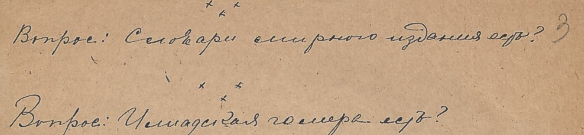 Вопрос: Словари смирного издания есть? 3
Вопрос: Илиадская гомера есть?